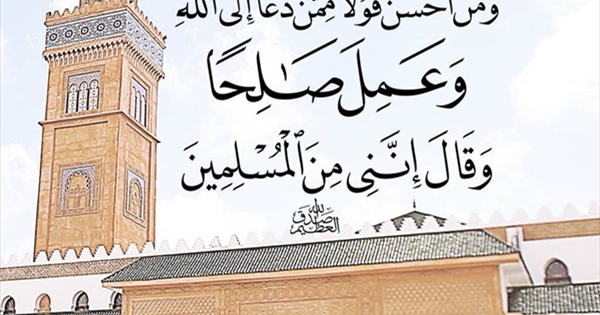 وَمَنْ أَحْسَنُ قَوْلًا مِمَّنْ دَعَا إِلَى اللَّهِ
وَعَمِلَ صَـٰلِحًا
وَقَالَ إِنَّنِى مِنَ ٱلْمُسْلِمِينَ
صدق الله العظيم